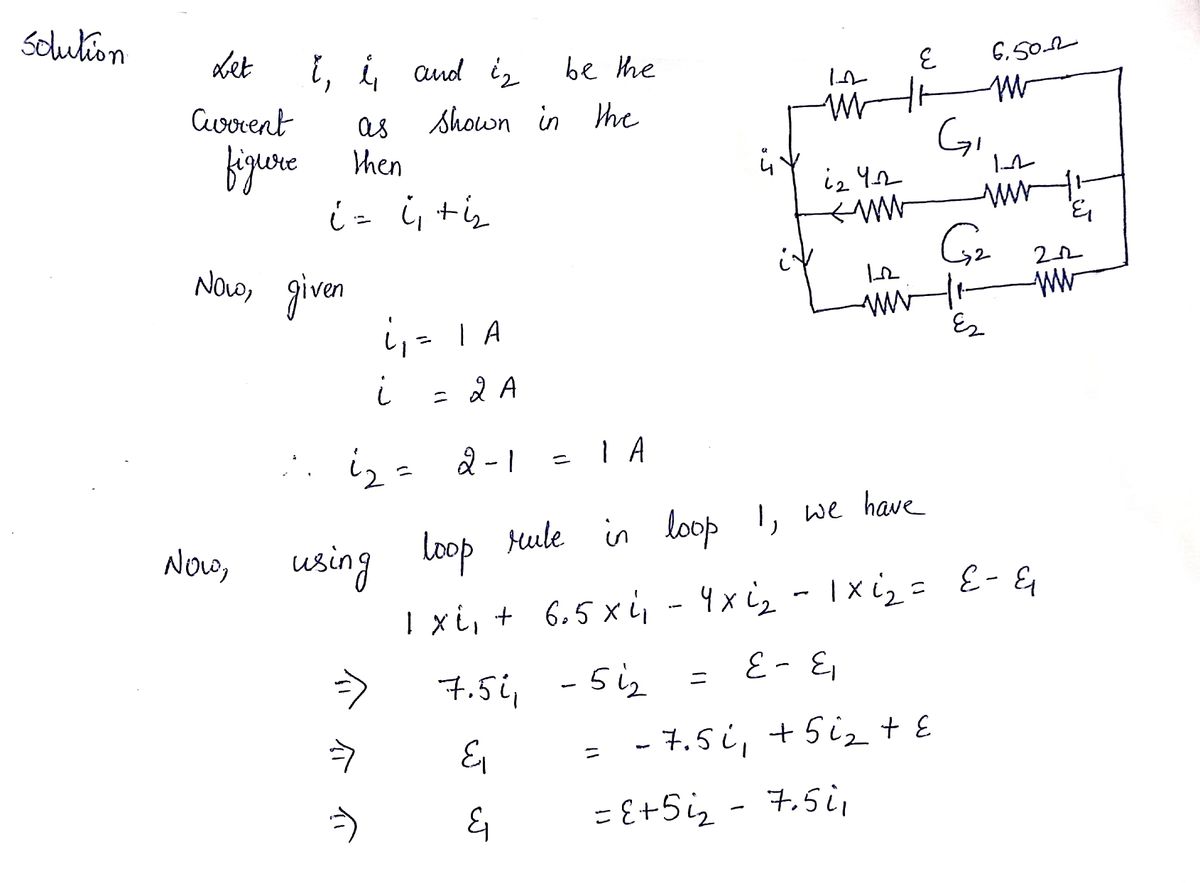 Solution
Let i, i₁ and i₂ be the
Current as shown in the
figure then
i = i₁ + i₂
Now, given
i₁ = 1 A
i = 2 A
∴ i₂ = 2 - 1 = 1 A
Now, using loop rule in loop 1, we have
1 x i₁ + 6.5 x i₁ - 4 x i₂ - 1 x i₂ = ε - ε₁
⇒ 7.5 i₁ - 5 i₂ = ε - ε₁
⇒ ε₁ = - 7.5 i₁ + 5 i₂ + ε
⇒ ε₁ = ε + 5 i₂ - 7.5 i₁
1Ω ε 6.50Ω
i₁ 1
i₂ 4Ω 1Ω
ε₁
i 2
1Ω 2Ω
ε₂